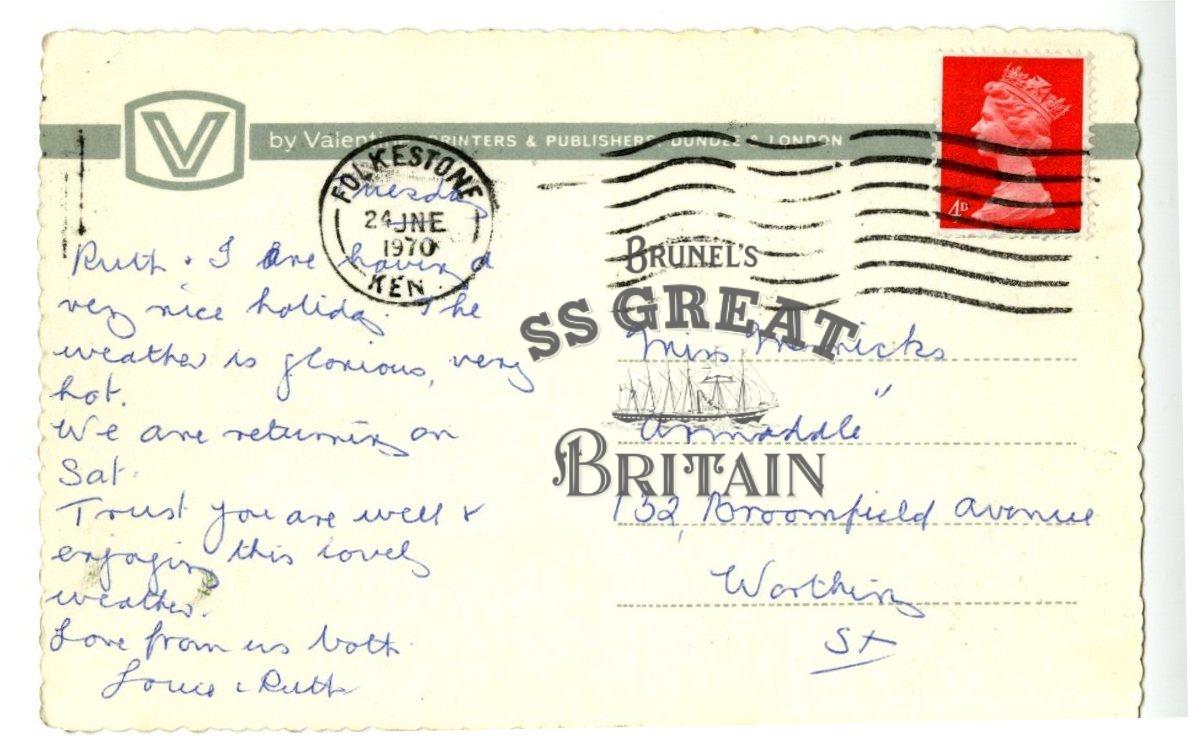 V
by Valentine PRINTERS & PUBLISHERS, DUNDEE & LONDON
FOLKESTONE
24 JNE
1970
KEN
4D
Tuesday
Ruth & I are having a
very nice holiday. The
weather is glorious, very
hot.
We are returning on
Sat.
Trust you are well &
enjoying this lovely
weather.
Love from us both
Louie & Ruth
BRUNEL'S
SS GREAT
BRITAIN
Miss
"Armadale"
132, Broomfield Avenue
Worthing
Sx